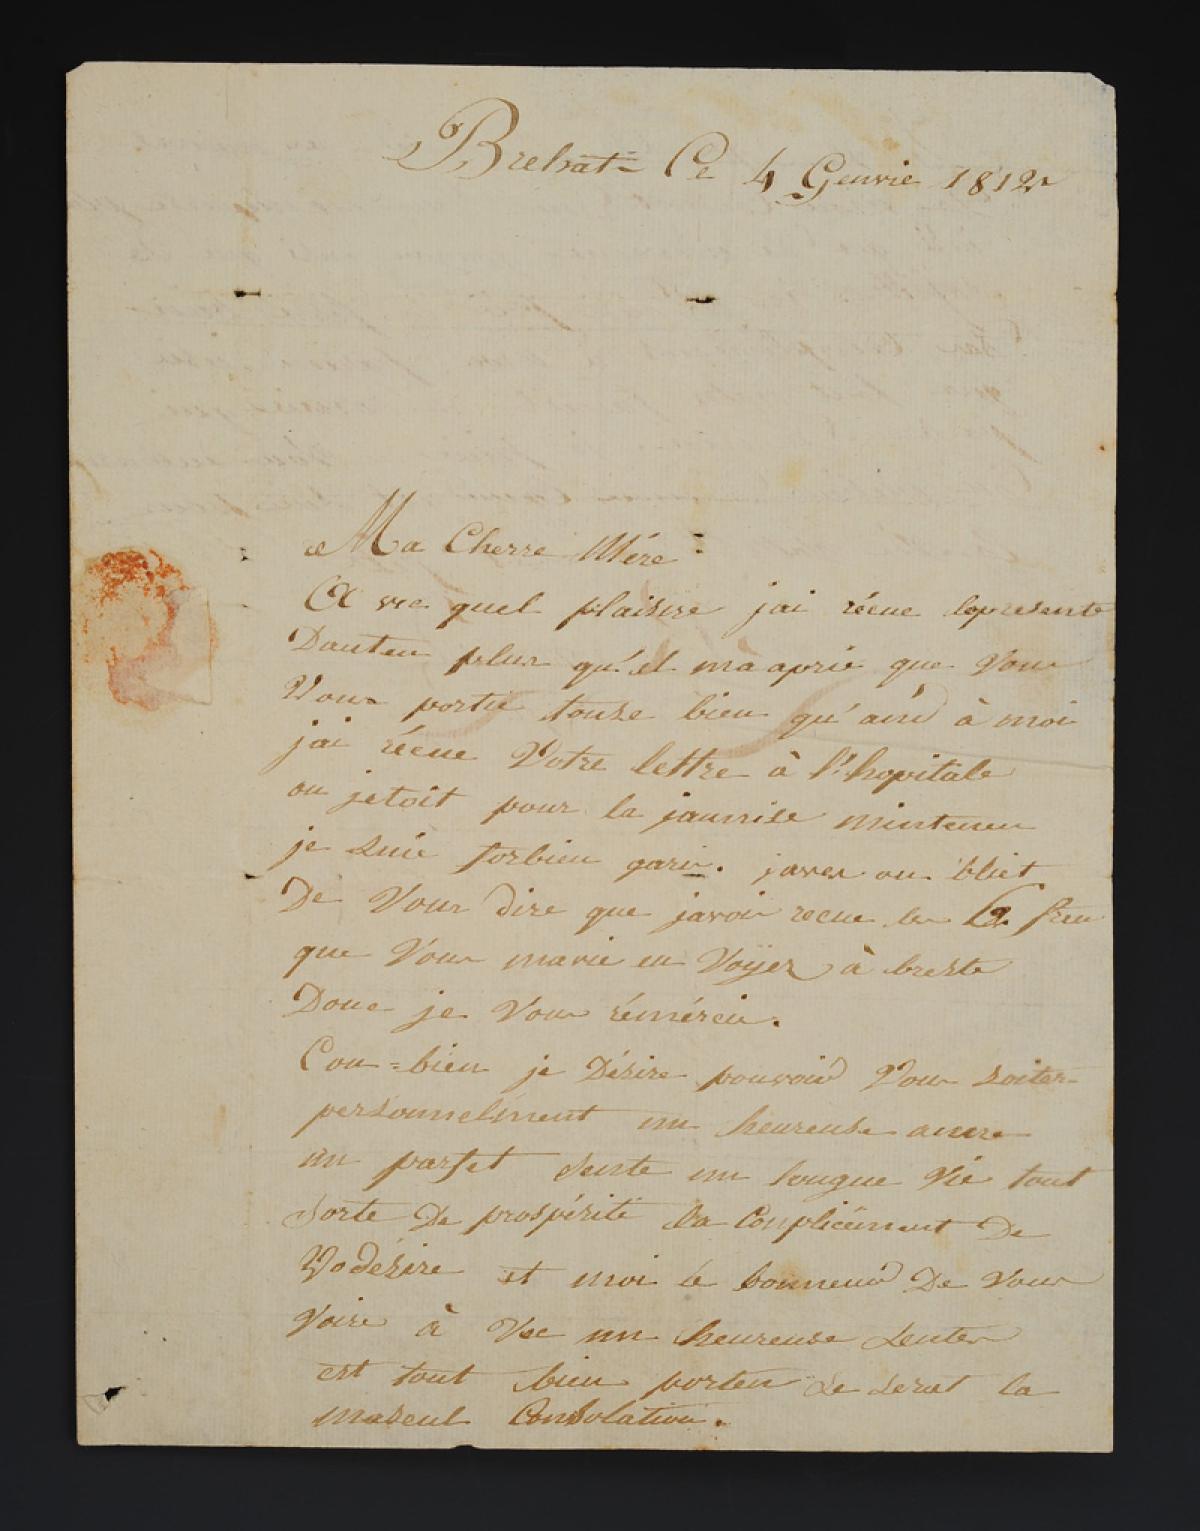 Brehat Ce 4 Genvie 1812
Ma Cherre Mére
A vec quel plaisire jai récue lapresente
Dauten plus qu'il ma aprie que Vous
Vous portie touse bien qu'ainci à moi
jai récue Votre lettre à l'hopitale
ou jetoit pour la jaunise mintenen
je suie forbien garie. javes ou bliet
De Vous dire que javoir recue les fren
que Vous mavie en Voÿez à breste
Donc je Vous rémércie.
Con=bien je Désire pouvoir Vous soiter
personnelment un heureuse anne
un parfet sente un longue Vie tout
sorte De prospérité la Conpliciment De
Vo désire et moi le bonneur De Vous
Voire à Vec un heureuse senter
est tout bien porten se serat la
maseul Consolation.